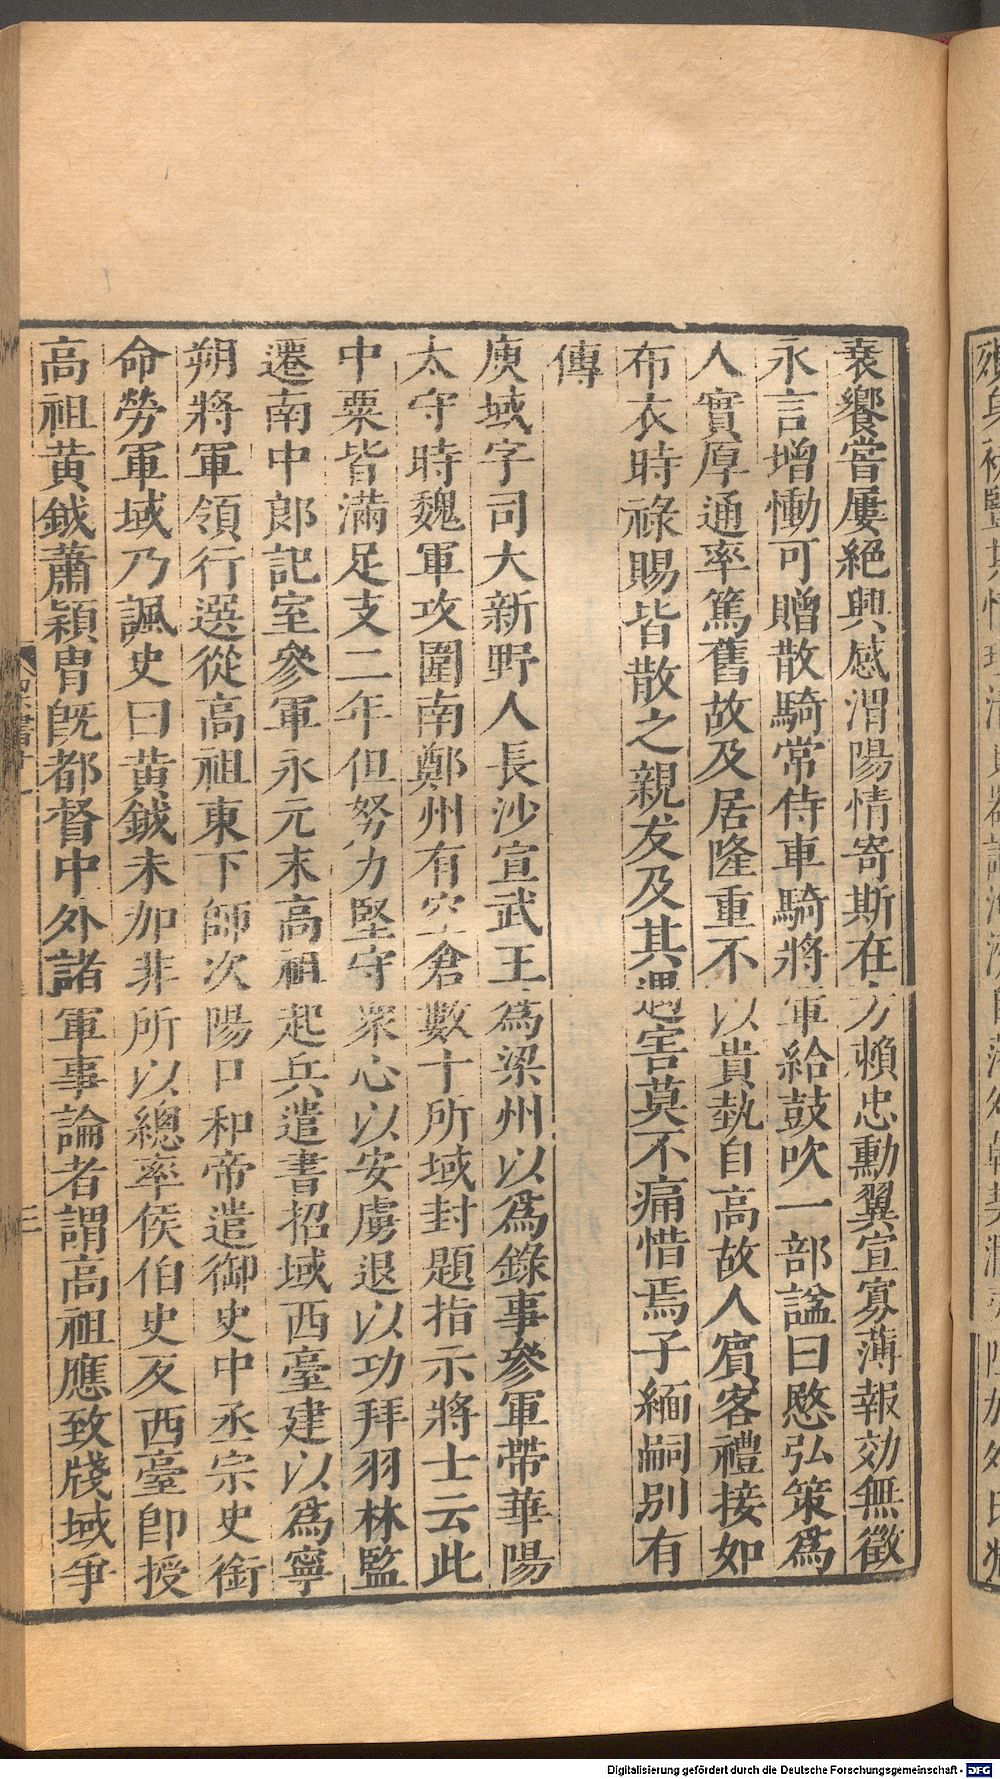 衰饗嘗屢絕興感渭陽情寄斯在方賴忠勳翼宣寡薄報効無徵
永言增慟可贈散騎常侍車騎將軍給鼓吹一部諡曰愍弘策爲
人實厚通率篤舊故及居隆重不以貴埶自高故人賔客禮接如
布衣時祿賜皆散之親友及其遇害莫不痛惜焉子緬嗣別有
傳
庾域字司大新野人長沙宣武王爲梁州以爲錄事參軍帶華陽
太守時魏軍攻圍南鄭州有空倉數十所域封題指示將士云此
中粟皆滿足支二年但努力堅守衆心以安虜退以功拜羽林監
遷南中郎記室參軍永元末高祖起兵遣書招域西臺建以爲寧
朔將軍領行選從高祖東下師次陽口和帝遣御史中丞宗史銜
命勞軍域乃諷史曰黃鉞未加非所以總率侯伯史反西臺卽授
高祖黃鉞蕭穎冑旣都督中外諸軍事論者謂高祖應致牋域爭
三
Digitalisierung gefördert durch die Deutsche Forschungsgemeinschaft - DFG